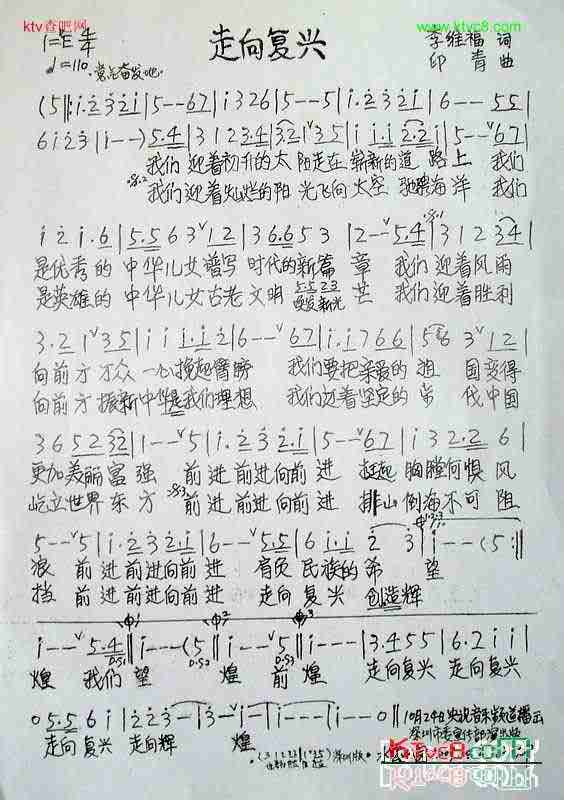 ktv查吧网
www.ktvc8.com
www.ktvc8.com
走向复兴
李维福 词
1=E 4/4
印青 曲
♩=110
(5|: i·2 3 2 i | 5 - - 6 7 | i 3 2 6 | 5 - - 5 | i·2 3 2 i | 6 - - 5 5 |
6 i 2 3 | i - - ) 5·4 | 3 1 2 3·4 | 3 2 1 ∨ 3 5 | i i·i 2·2 i | 5 - - ∨ 6 7 |
我们 迎着初升的太 阳走在 崭新的道 路上 我们
我们 迎着灿烂的阳 光飞向 太空 海洋 我们
i 2 i·6 | 5·5 6 3 ∨ 1 2 | 3 6·6 5 3 | 2 - - ∨ 5·4 | 3 1 2 3 4 |
是优秀的 中华儿女谱写 时代的新篇 章 我们 迎着风雨
是英雄的 中华儿女古老 文明 焕发新光 芒 我们 迎着胜利
3·2 1 ∨ 3 5 | i i i·i 2 | 6 - - ∨ 6 7 | i·i 7 6 6 | 5 6 3 ∨ 1 2 |
向前方 万众 一心挽起臂膀 我们要把亲爱的 祖 国变得
向前方 振新中华是我们理想 我们迈着坚定的 步 伐中国
3 6 5 2 3 2 | 1 - - ∨ 5 | i·2 3 2·i | 5 - - ∨ 6 7 | i 3 2·2 6 |
更加美丽富 强 前进 前进向前 进 挺起 胸膛何惧 风
屹立世界东 方 前进 前进向前 进 排山 倒海不可 阻
5 - - ∨ 5 | i·2 3 2·i | 6 - - ∨ 5·5 | 6 i·i 2 3 | i - - (5 :||
浪 前进 前进向前 进 肩负 民族的 希 望
挡 前进 前进向前 进 走向 复兴 创造辉
i - - ∨ 5·4 || i - - (5 || i - - ∨ 5 || i - - - | 3·4 5 5 | 6·2 i i |
煌 我们 望 煌 前 煌 走向复兴 走向复兴
0 5·5 6 i | 2 2 3 - | 3 - i - | i - - - | i - - - | i - - 0 ||
走向 复兴 走向辉 煌
10月24日央视音乐频道播出
深圳市委宣传部演出版
深圳版
KTVc8.com